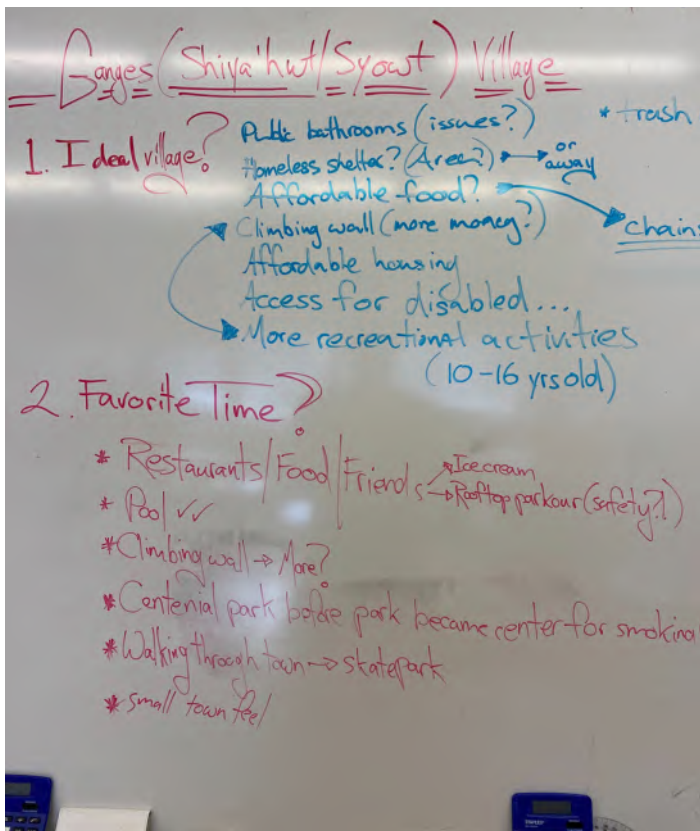 Ganges (Shiya'hwt/Syowt) Village
1. Ideal village?
Public bathrooms (issues?)
* trash
Homeless shelter? (Area?) → or away
Affordable food? → chains
Climbing wall (more money?)
Affordable housing
Access for disabled...
More recreational activities
(10-16 yrs old)
2. Favorite Time?
* Restaurants/Food/Friends → Ice cream
→ Rooftop parkour (safety?!)
* Pool ✓✓
* Climbing wall → More?
* Centenial park before park became center for smoking
* Walking through town → skatepark
* small town feel